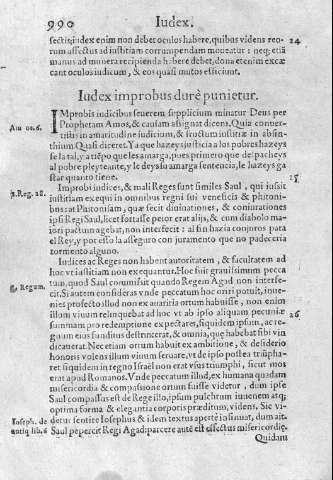 990 Iudex.
fectis, index enim non debet oculos habere, quibus videns reo- 24
rum affectus ad iustitiam corrumpendam moueatur: neq; etiā
manus ad munera recipienda habere debet, dona etenim excæ
cant oculos iudicum, & eos quasi mutos efficiunt.
Iudex improbus durè punietur.
IMprobis iudicibus seuerem supplicium minatur Deus per
Prophetam Amos, & causam assignat dicens. Quia conuer-
tistis in amaritudine iudicium, & fructum iustitiæ in absin-
thium. Quasi diceret. Ya que hazeys justicia a los pobres hazeys
se la tal, y a tiēpo que les amarga, pues primero que de pacheys
al pobre pleyteante, y le deys su amarga sentencia, le hazeys ga
star quanto tiene.
Improbi iudices, & mali Reges sunt similes Saul, qui iussit
iustitiam exequi in omnibus regni sui veneficis & phitoni-
bus at Phitonisam, quæ fecit diuinationes, & coniurationes
ipsi Regi Saul, licet fortasse peior erat alijs, & cum diabolo ma-
iori pactum agebat, non interfecit: al fin hazia conjuros para
el Rey, y por esto la asseguro con juramento que no padeceria
tormento alguno.
Iudices ac Reges non habent autoritatem, & facultatem ad
hoc vt iustitiam non exequantur. Hoc fuit grauissimum pecca
tum, quod Saul comisit quando Regem Agad non interfe-
cit. Si autem consideras vnde peccatum hoc oriri potuit, inue-
nies profecto illud non ex auaritia ortum habuisse, non enim
illum viuum relinquebat ad hoc vt ab ipso aliquam pecuniæ
summam pro redemptione expectares, siquidem ipsum, ac re-
gnum eius funditus destruxerat, & omnia, que habebat sibi vin
dicauerat. Nec etiam ortum habuit ex ambitione, & desiderio
honoris volens illum viuum seruare, vt de ipso postea triūpha-
ret siquidem in regno Israel non erat vsus triumphi, sicut mos
erat apud Romanos. Vnde peccatum illud, ex humana quadam
misericordia & compassione ortum fuisse videtur, dum ipse
Saul compassus est de Rege illo, ipsum pulchrum iuuenem atq;
optima forma & elegantia corporis præditum, videns. Sic vi-
detur sentire Iosephus & idem textus aperte insinuat, dum ait.
Saul pepercit Regi Agad: parcere autē est effectus misericordię.
Quidam
Am os. 6.
25
1. Reg. 28.
26
Ioseph. de
antiq lib. 6